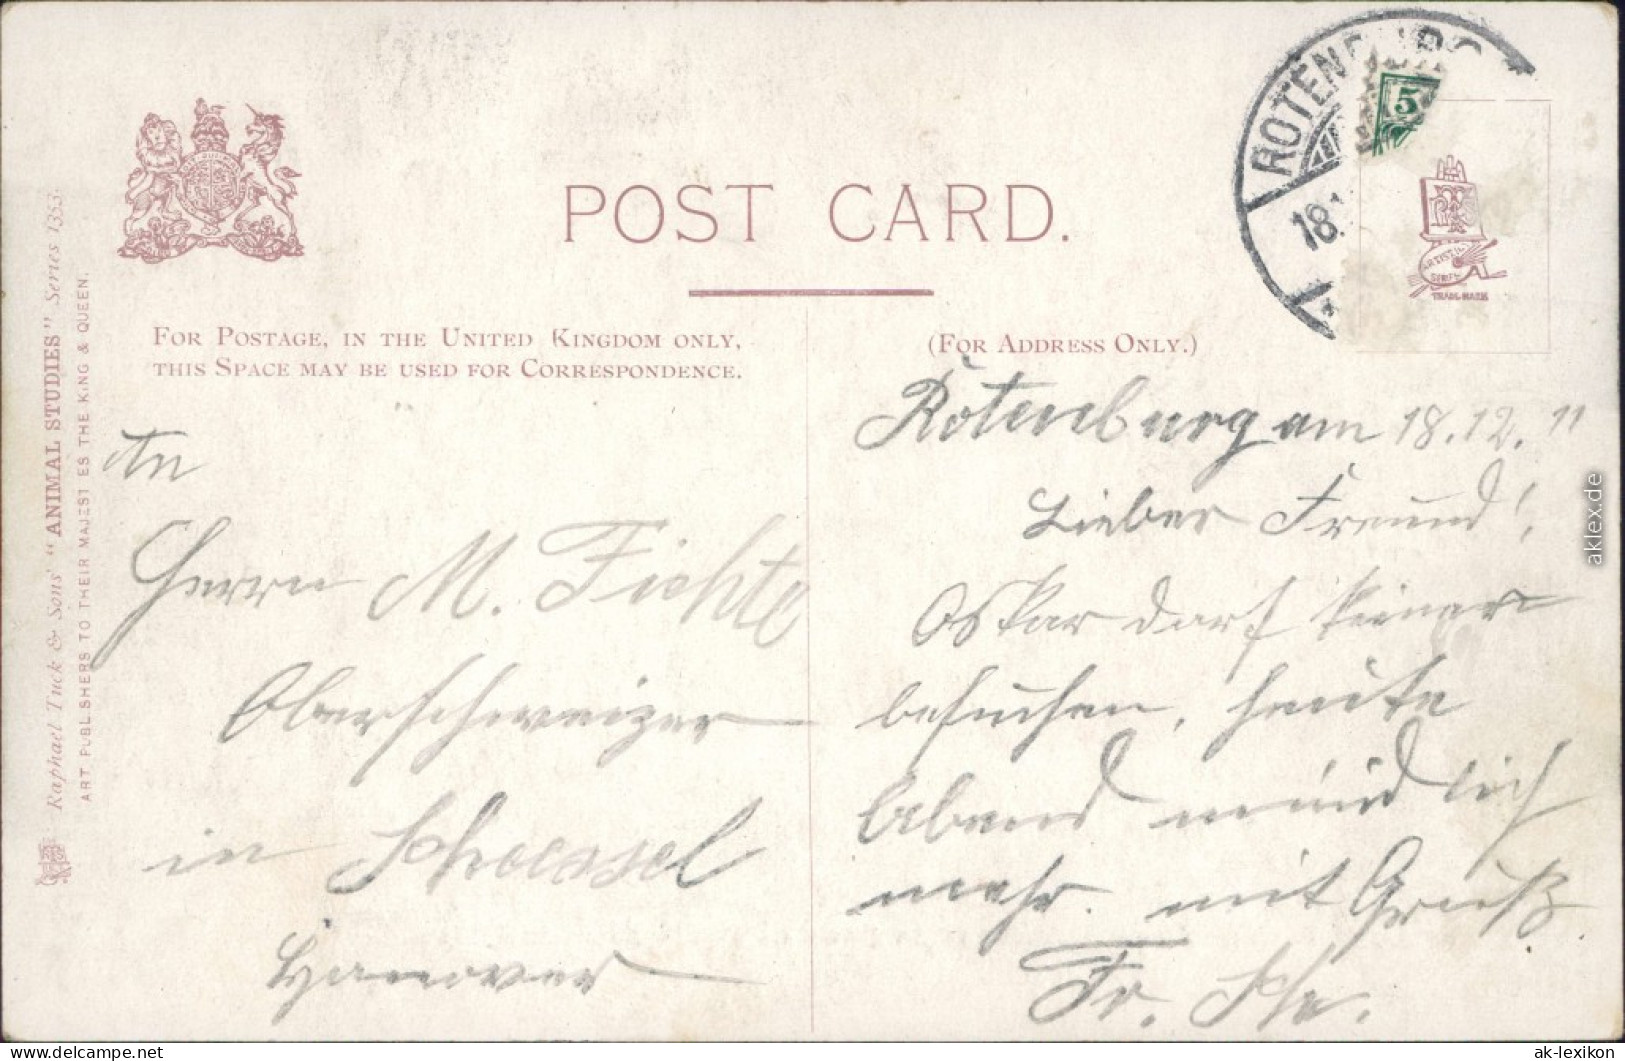 ROTENBURG
18.1
5
POST CARD.
FOR POSTAGE, IN THE UNITED KINGDOM ONLY,
THIS SPACE MAY BE USED FOR CORRESPONDENCE.
(FOR ADDRESS ONLY.)
ARTISTIC
SERIES
TRADE-MARK
Raphael Tuck & Sons' "ANIMAL STUDIES" Series 1353.
ART PUBLISHERS TO THEIR MAJESTIES THE KING & QUEEN.
An
Herrn M. Fichte
Oberschweizer
in
Hanover
Rotenburg am 18.12.11
Lieber Freund!
Oskar darf keinen
besuchen, heute
Abend mündlich
mehr. mit Gruß
Fr.
aklex.de
delcampe.net
ak-lexikon